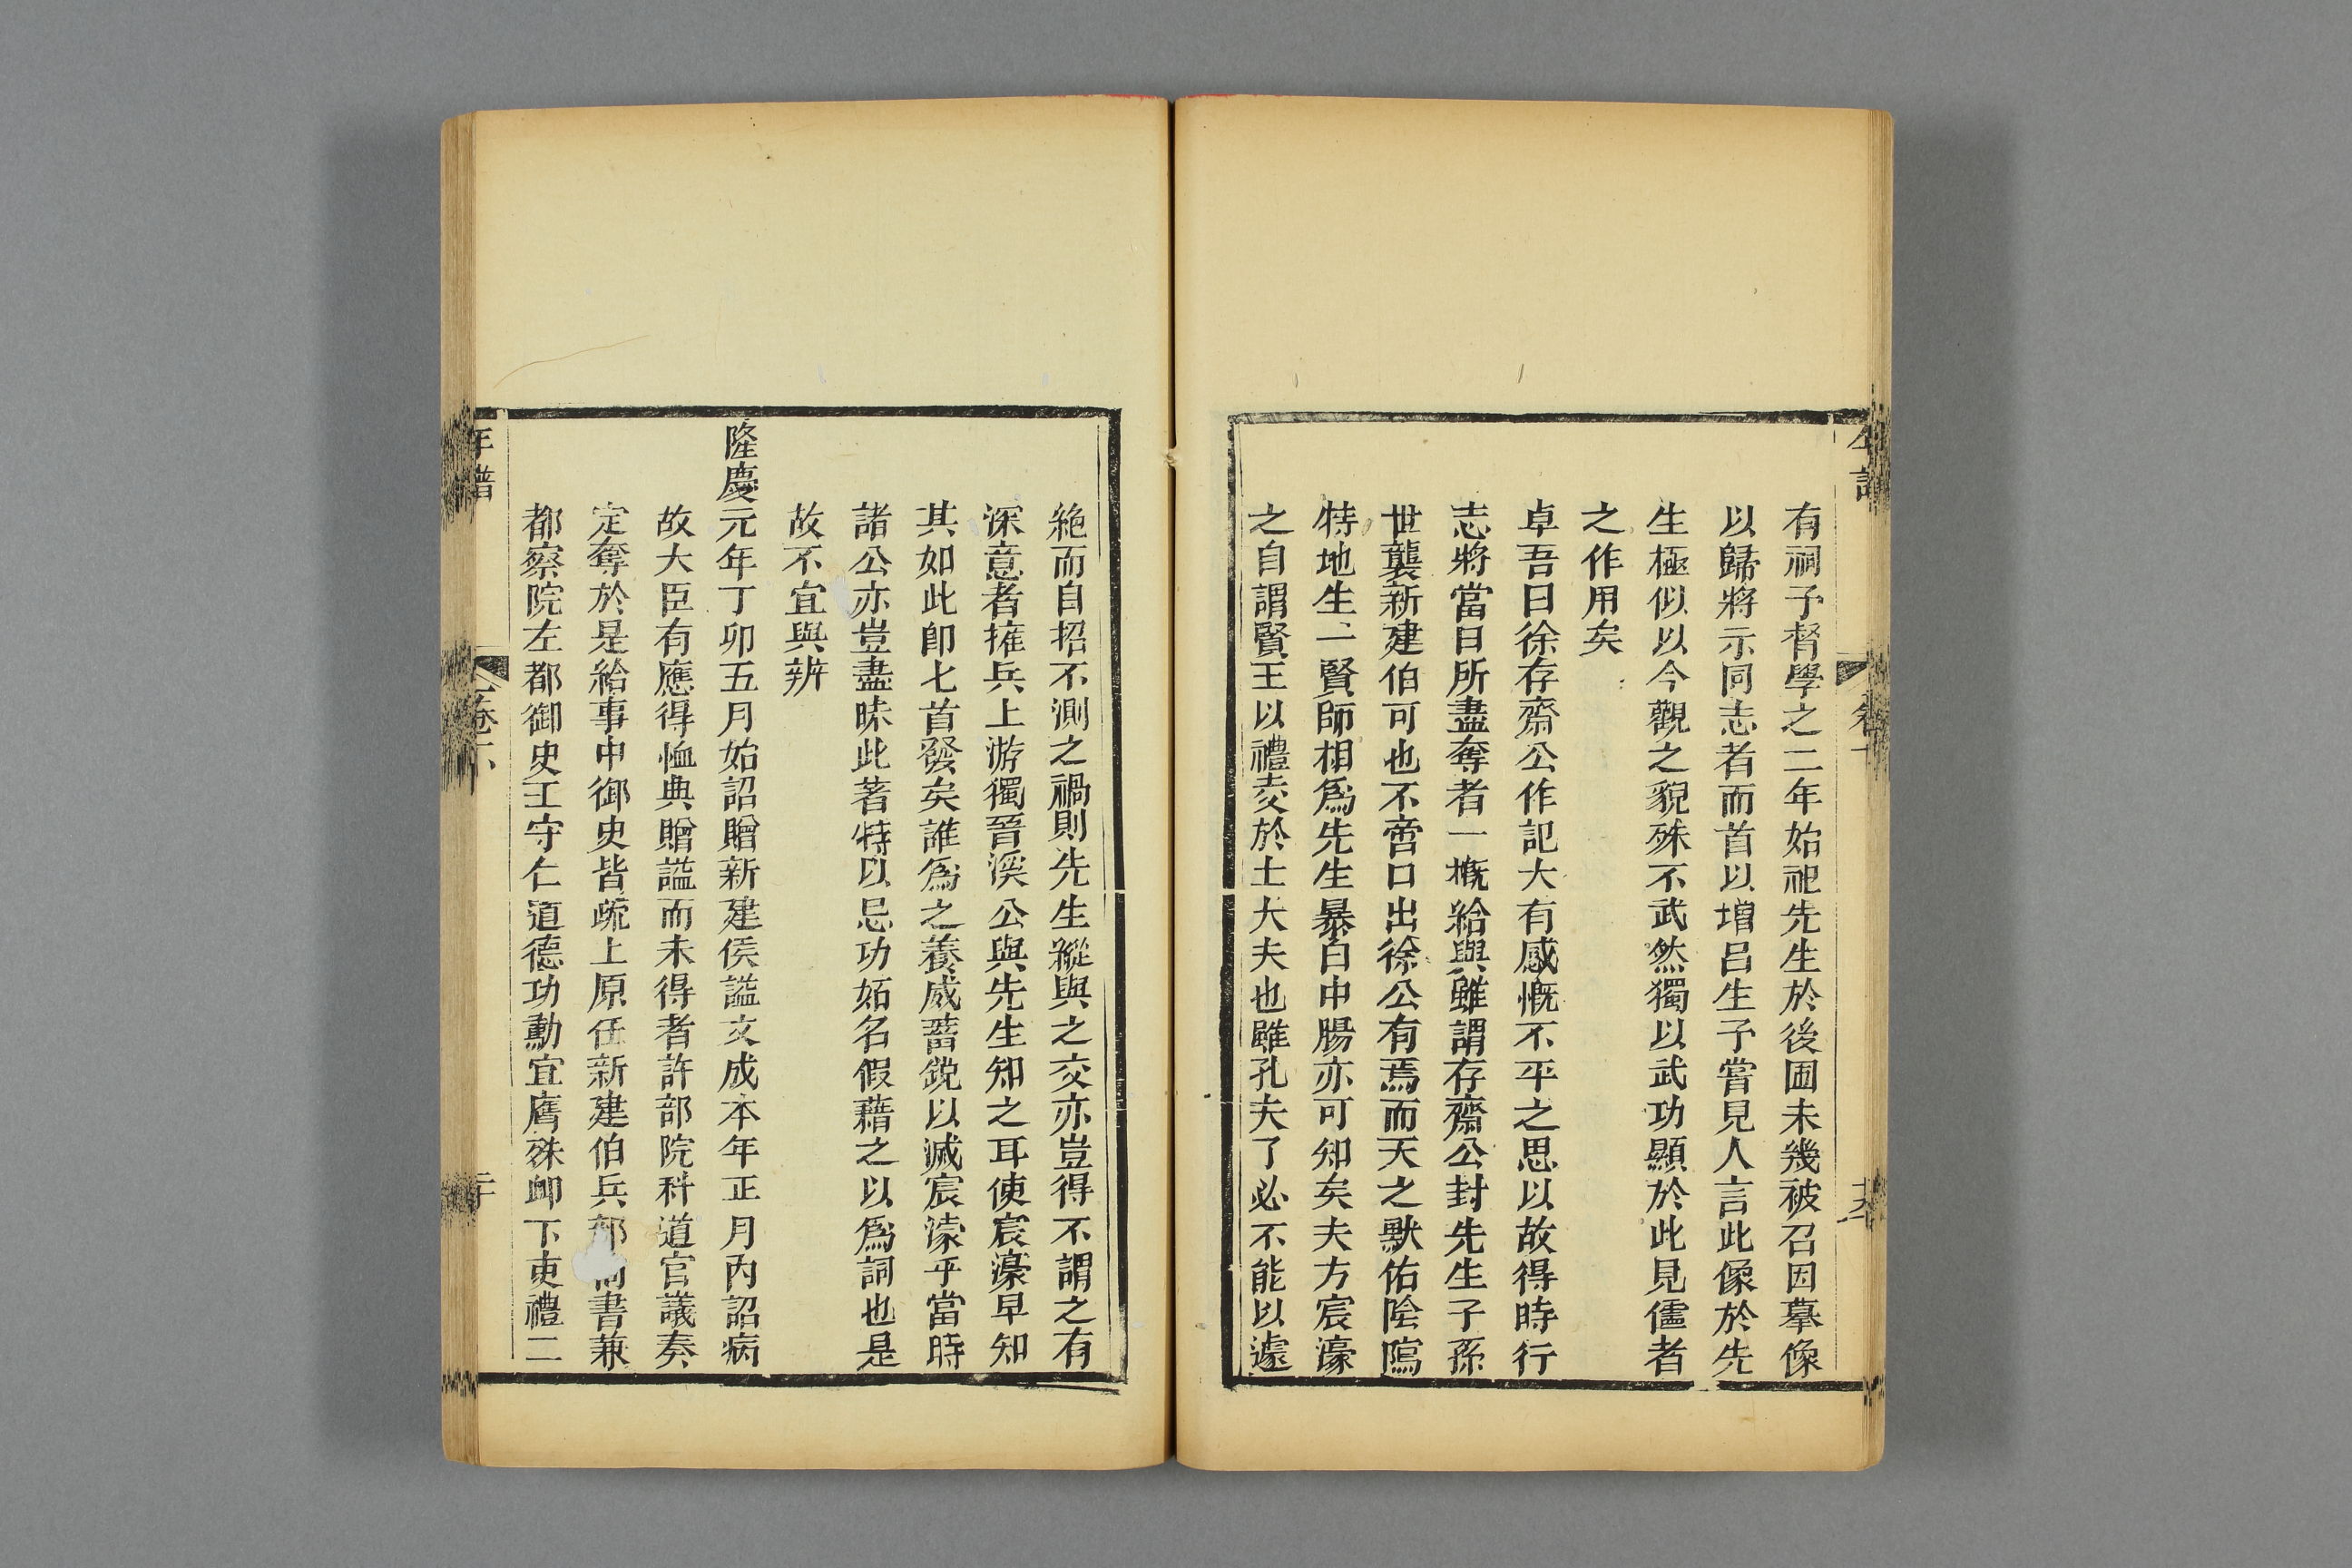 有祠予督學之二年始祀先生於後圃未幾被召因摹像
以歸將示同志者而首以增呂生予嘗見人言此像於先
生極似以今觀之貌殊不武然獨以武功顯於此見儒者
之作用矣
卓吾曰徐存齋公作記大有感慨不平之思以故得時行
志將當日所盡奪者一槪給與雖謂存齋公封先生子孫
世襲新建伯可也不啻口出徐公有焉而天之默佑陰隲
特地生一賢師相爲先生暴白中腸亦可知矣夫方宸濠
之自謂賢王以禮交於士大夫也雖孔夫了必不能以遽
絶而自招不測之禍則先生縱與之交亦豈得不謂之有
深意者擁兵上游獨晉溪公與先生知之耳使宸濠早知
其如此卽七首發矣誰爲之養威蓄銳以滅宸濠乎當時
諸公亦豈盡昧此著特以忌功妬名假藉之以爲詞也是
故不宜與辨
隆慶元年丁卯五月始詔贈新建侯諡文成本年正月內詔病
故大臣有應得恤典贈諡而未得者許部院科道官議奏
定奪於是給事中御史皆疏上原任新建伯兵部尚書兼
都察院左都御史王守仁道德功勳宜膺殊卹下吏禮二
年譜
卷下